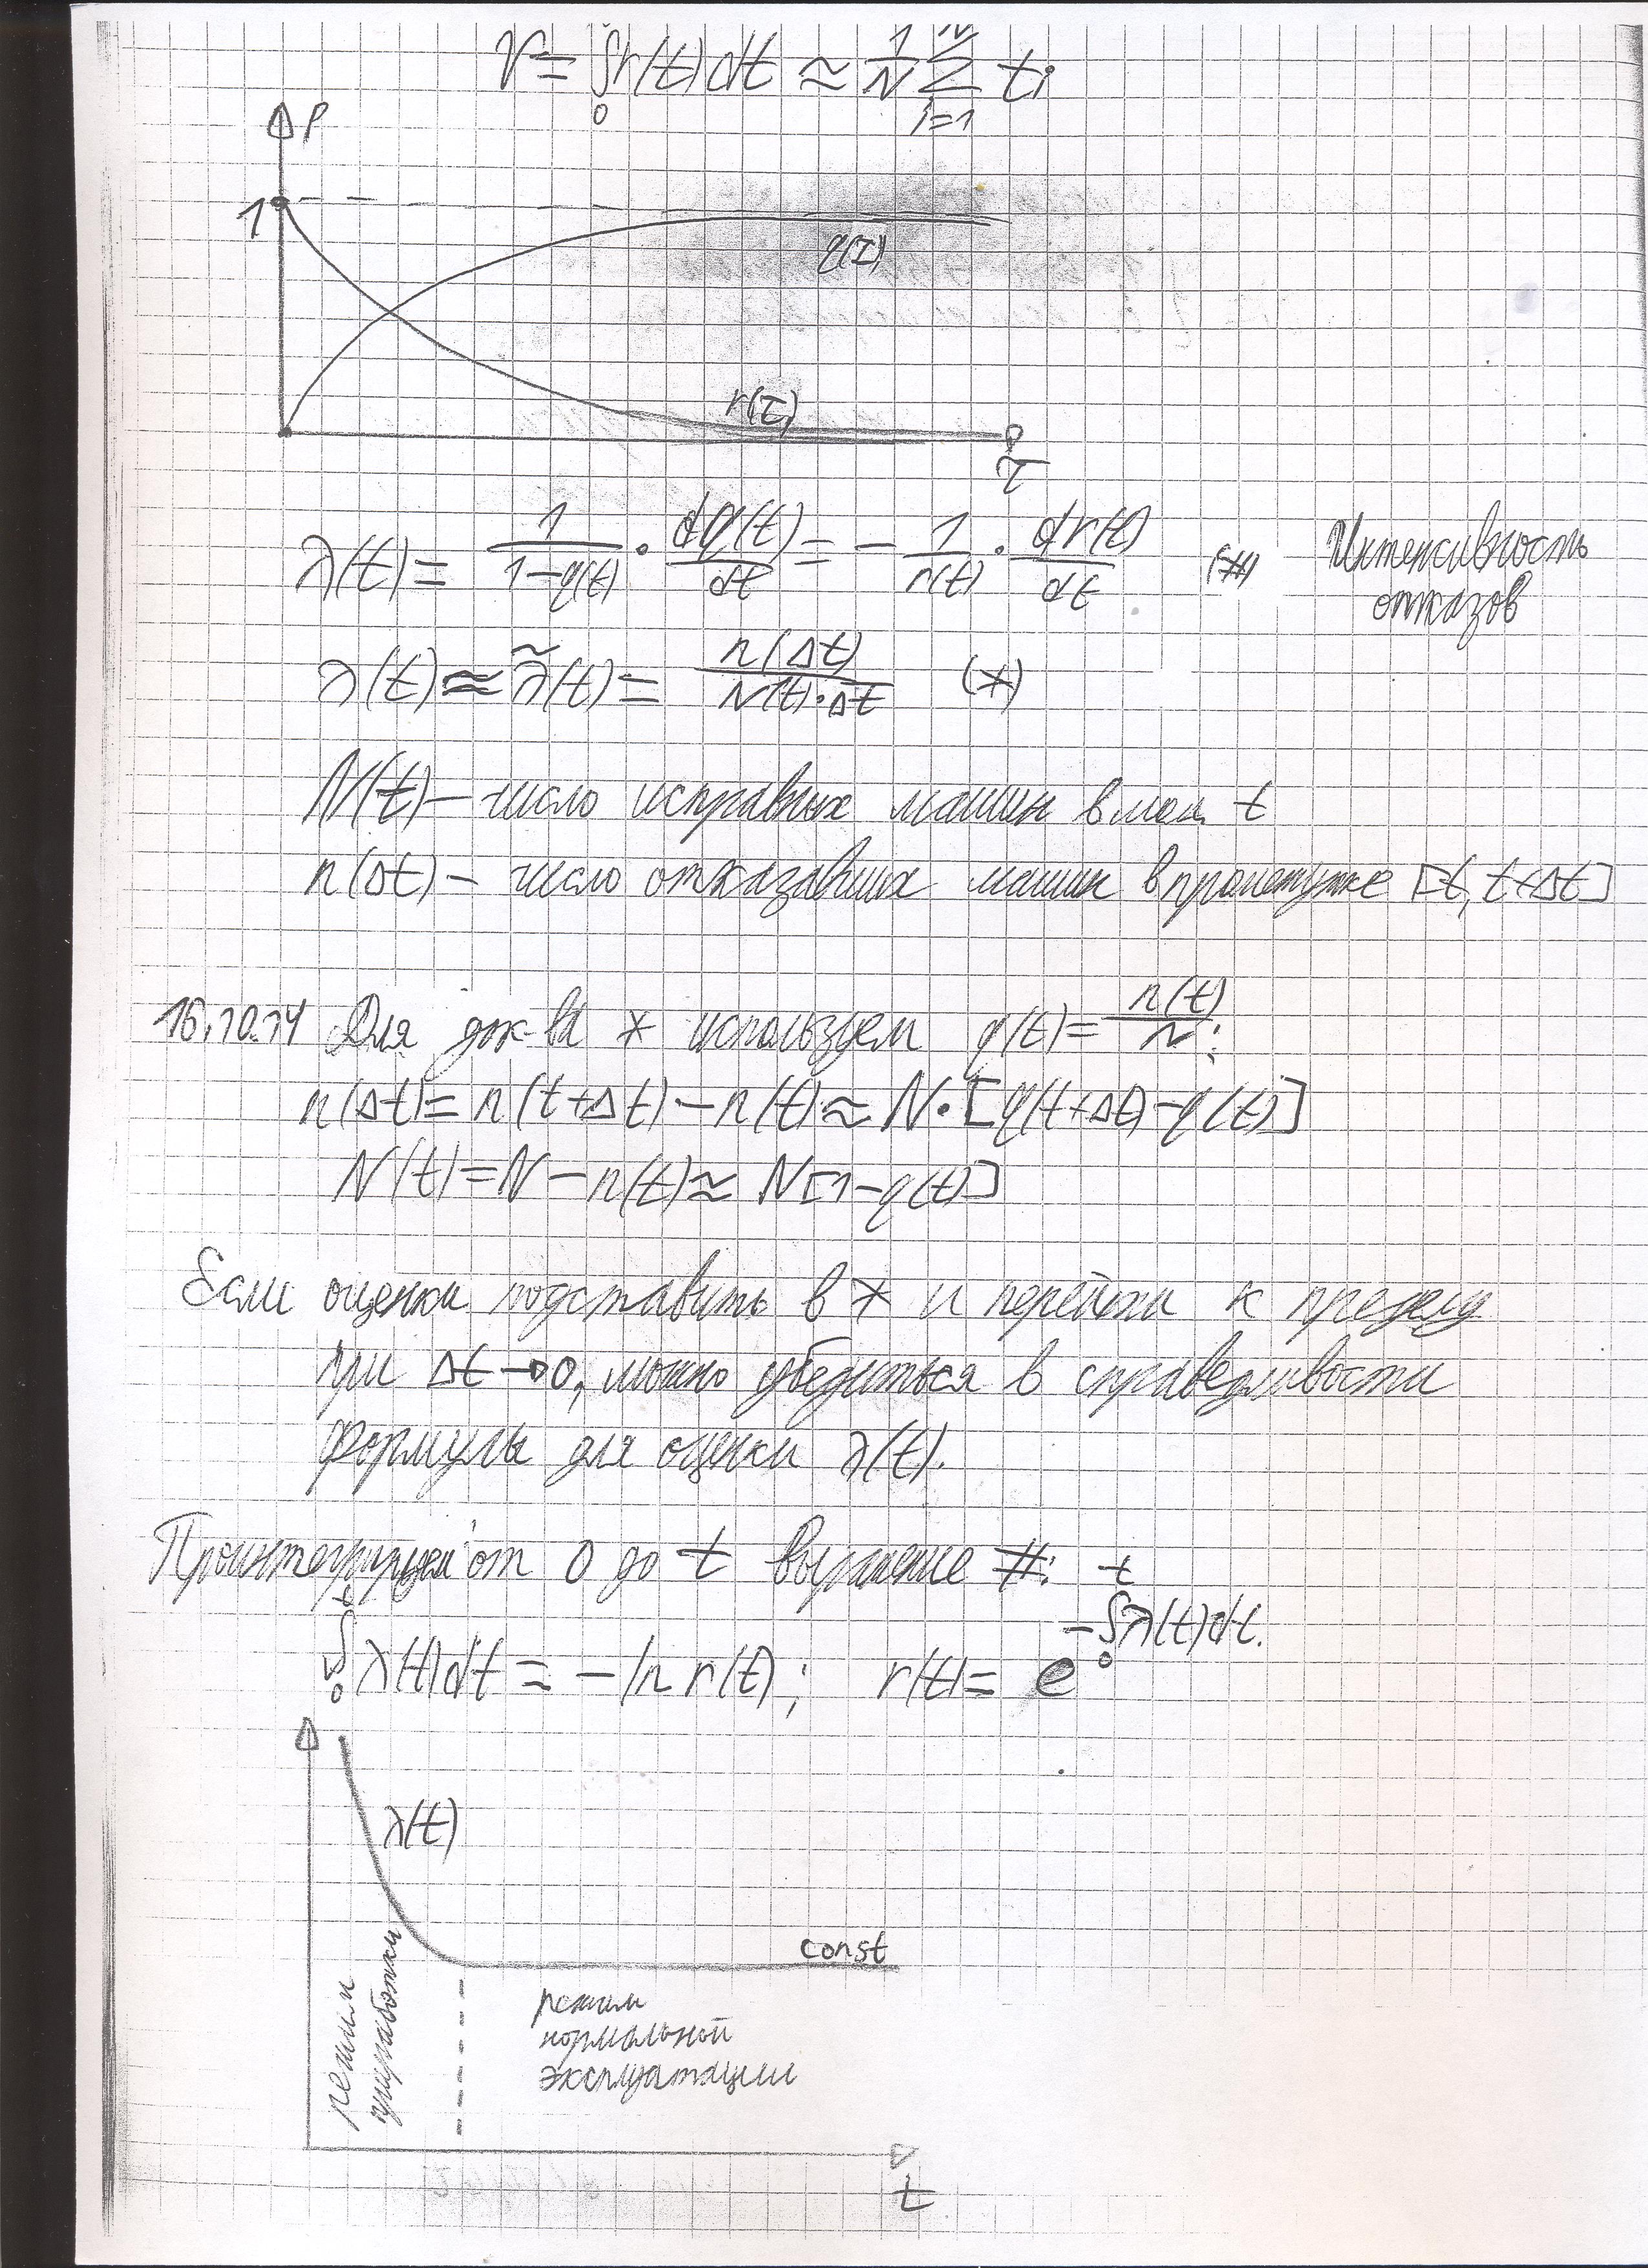 𝒱 = ∫₀ r(t)dt ≈ 1/N ∑ᵢ₌₁ᴺ tᵢ
P
1
q(τ)
r(τ)
τ
λ(t) = 1/(1-q(t)) · dq(t)/dt = - 1/r(t) · dr(t)/dt (#) Интенсивность
отказов
λ(t) ≈ λ̃(t) = n(Δt)/(N(t)·Δt) (*)
N(t) – число исправных машин в мом. t
n(Δt) – число отказавших машин в промежутке [t, t+Δt]
16.10.14 Для док-ва * используем q(t) = n(t)/N;
n(Δt) = n(t+Δt) - n(t) ≈ N·[q(t+Δt)-q(t)]
N(t) = N - n(t) ≈ N[1-q(t)]
Если оценки подставить в * и перейти к пределу
при Δt→0, можно убедиться в справедливости
формулы для оценки λ(t).
Проинтегрируем от 0 до t выражение #:
∫₀ᵗ λ(t)dt = -ln r(t); r(t) = e^(-∫₀ᵗ λ(t)dt).
λ(t)
const
режим
приработки
режим
нормальной
эксплуатации
t